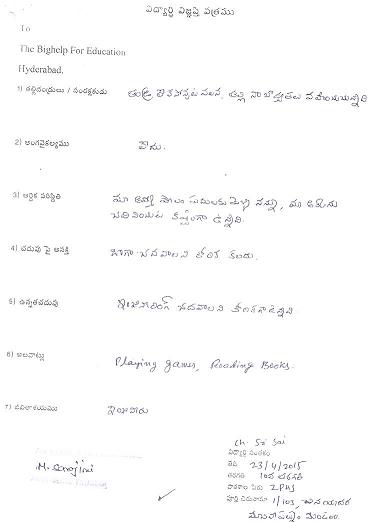 విద్యార్థి విజ్ఞప్తి పత్రము
To
The Bighelp For Education
Hyderabad.
1) తల్లిదండ్రులు / సంరక్షకుడు తండ్రి లేకపోవుట వలన, తల్లి నా బాధ్యతలు
2) అంగవైకల్యము లేదు.
3) ఆర్థిక పరిస్థితి మా అమ్మ
చదివించుట కష్టంగా ఉన్నది.
4) చదువు పై ఆసక్తి బాగా చదవాలని కోరిక కలదు.
5) ఉన్నతచదువు ఇంజనీరింగ్ చదవాలని కోరికగా ఉన్నది
6) అలవాట్లు Playing games, Reading Books.
7) నివాసాశయము
M. Sarojini
Ch. Sri Sai
విద్యార్థి సంతకం
తేది 23/4/2015
తరగతి 10వ తరగతి
పాఠశాల పేరు ZPHS
పూర్తి చిరునామా 1/103,
మండలం